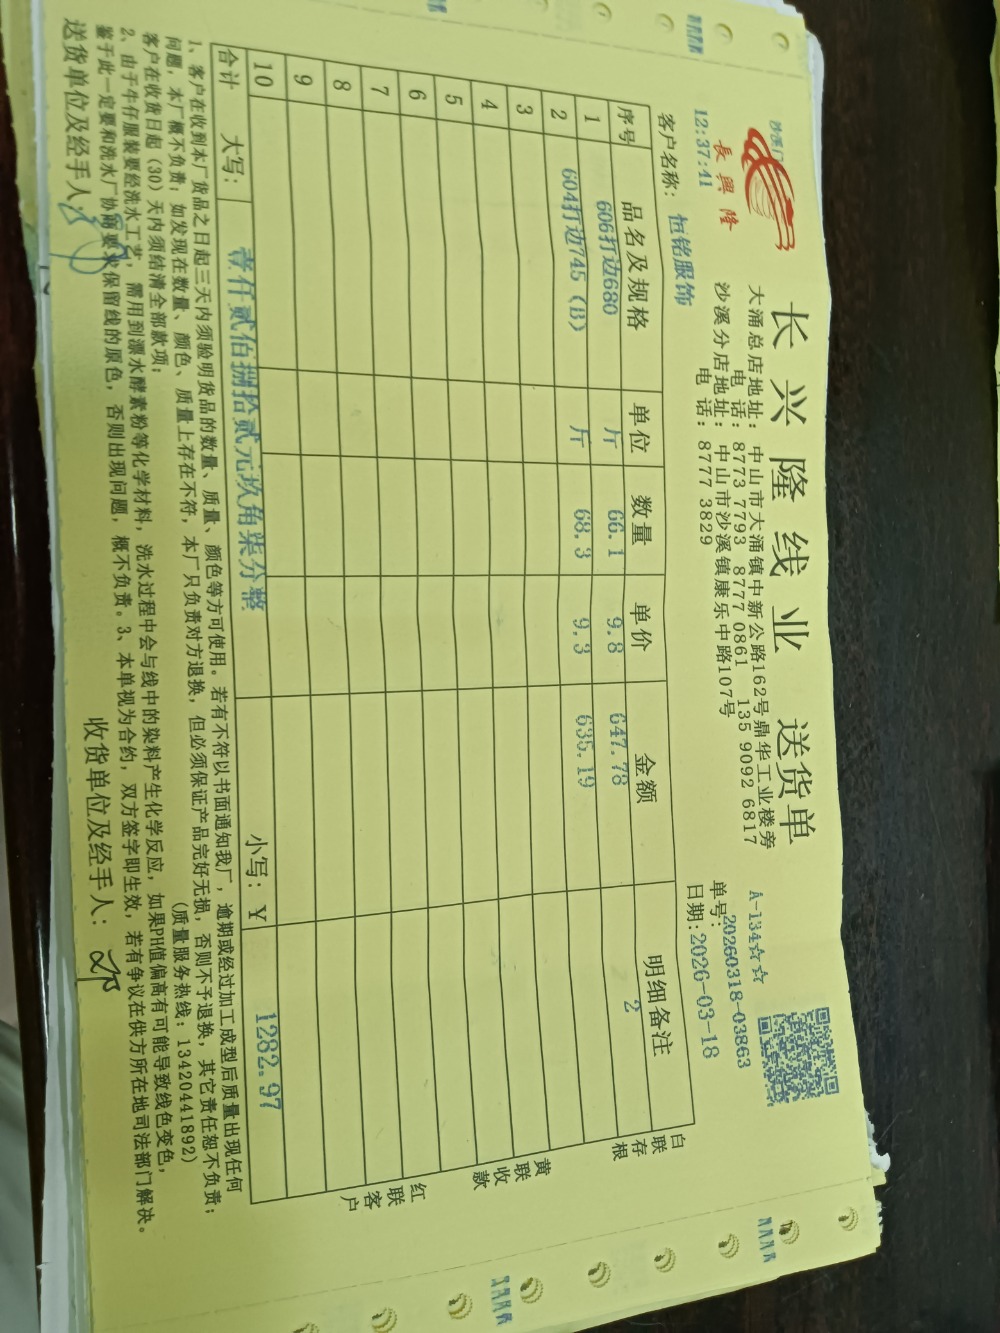 沙溪门
長興隆
12:37:41
长兴隆线业 送货单
大涌总店地址: 中山市大涌镇中新公路162号鼎华工业楼旁
电 话: 8773 7793 8777 0861 135 9092 6817
沙溪分店地址: 中山市沙溪镇康乐中路107号
电 话: 8777 3829
A-134☆☆
单号: 20260318-03863
日期: 2026-03-18
客户名称: 恒铭服饰
序号 品名及规格 单位 数量 单价 金额 明细备注
1 606打边680 斤 66.1 9.8 647.78 2
2 604打边745 (B) 斤 68.3 9.3 635.19
3
4
5
6
7
8
9
10
合计 大写: 壹仟贰佰捌拾贰元玖角柒分整 小写: ¥ 1282.97
白联存根
黄联收款
红联客户
1、客户在收到本厂货品之日起三天内须验明货品的数量、质量、颜色等方可使用。若有不符以书面通知我厂,逾期或经过加工成型后质量出现任何
问题,本厂概不负责;如发现在数量、颜色、质量上存在不符,本厂只负责对方退换,但必须保证产品完好无损,否则不予退换,其它责任恕不负责;
客户在收货日起(30)天内须结清全部款项; (质量服务热线: 13420441892)
2、由于牛仔服装要经洗水工艺,需用到漂水酵素粉等化学材料,洗水过程中会与线中的染料产生化学反应,如果PH值偏高有可能导致线色变色,
鉴于此一定要和洗水厂协商要求保留线的原色,否则出现问题,概不负责。3、本单视为合约,双方签字即生效,若有争议在供方所在地司法部门解决。
送货单位及经手人:
收货单位及经手人: